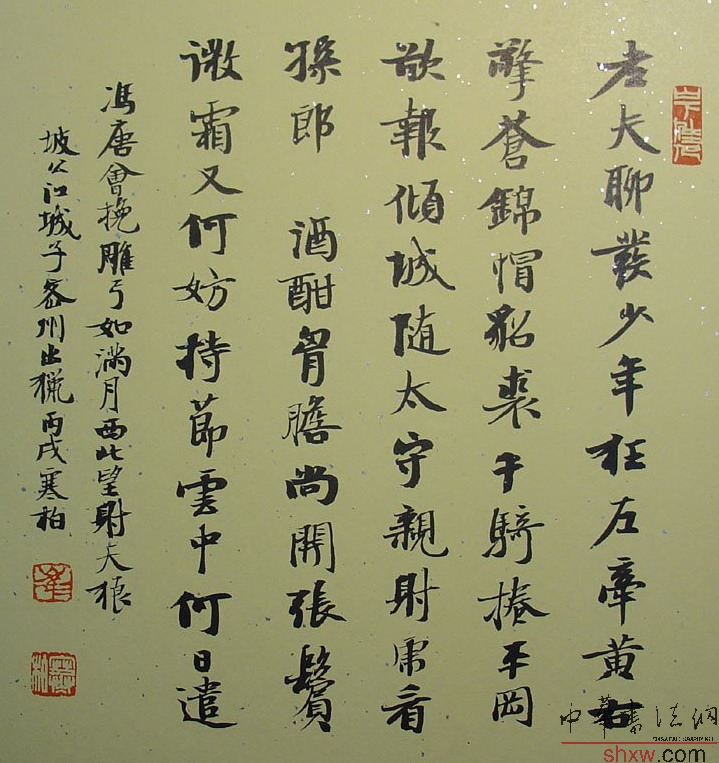 老夫聊發少年狂左牽黃右
擎蒼錦帽貂裘千騎捲平岡
欲報傾城随太守親射虎看
孫郎 酒酣胷膽尚開張鬢
微霜又何妨持節雲中何日遣
馮唐會挽雕弓如滿月西北望射天狼
坡公江城子密州出猟丙戌寒柏
中華書法網
shxw.com